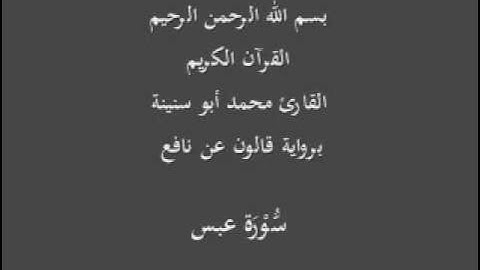 بسم الله الرحمن الرحيم
القرآن الكريم
القارئ محمد أبو سنينة
برواية قالون عن نافع
سُّوْرَة عبس